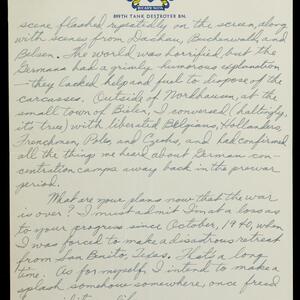 899TH TANK DESTROYER BN.
scene flashed repeatedly on the screen, along
with scenes from Dachau, Buchenwald and
Belsen. The world was horrified, but the
Germans had a grimly humorous explanation
— they lacked help and fuel to dispose of the
carcasses. Outside of Nordhausen, at the
small town of Bielen, I conversed (haltingly,
its true) with liberated Belgians, Hollanders,
Frenchmen, Poles, and Czechs, and had confirmed
all the things we heard about German con-
centration camps away back in the prewar
period.
What are your plans now that the war
is over? I must admit I'm at a loss as
to your progress since October, 1940, when
I was forced to make a disastrous retreat
from San Benito, Texas. That's a long
time. As for myself, I intend to make a
splash somehow somewhere, once freed